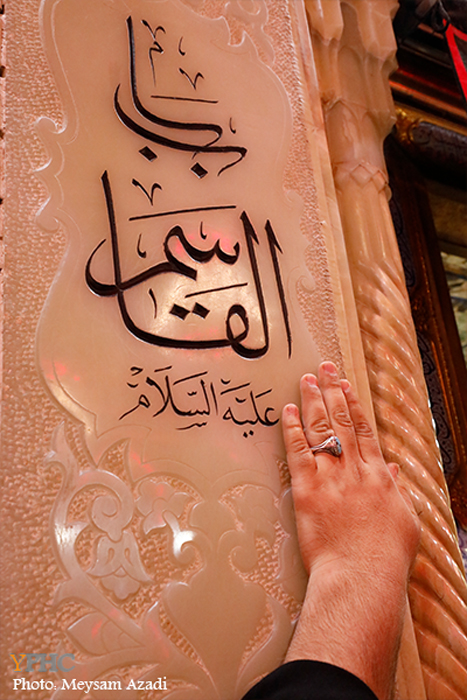 باب
القاسم
عَلَيْهِ السَّلَامْ
YPHC
Photo: Meysam Azadi